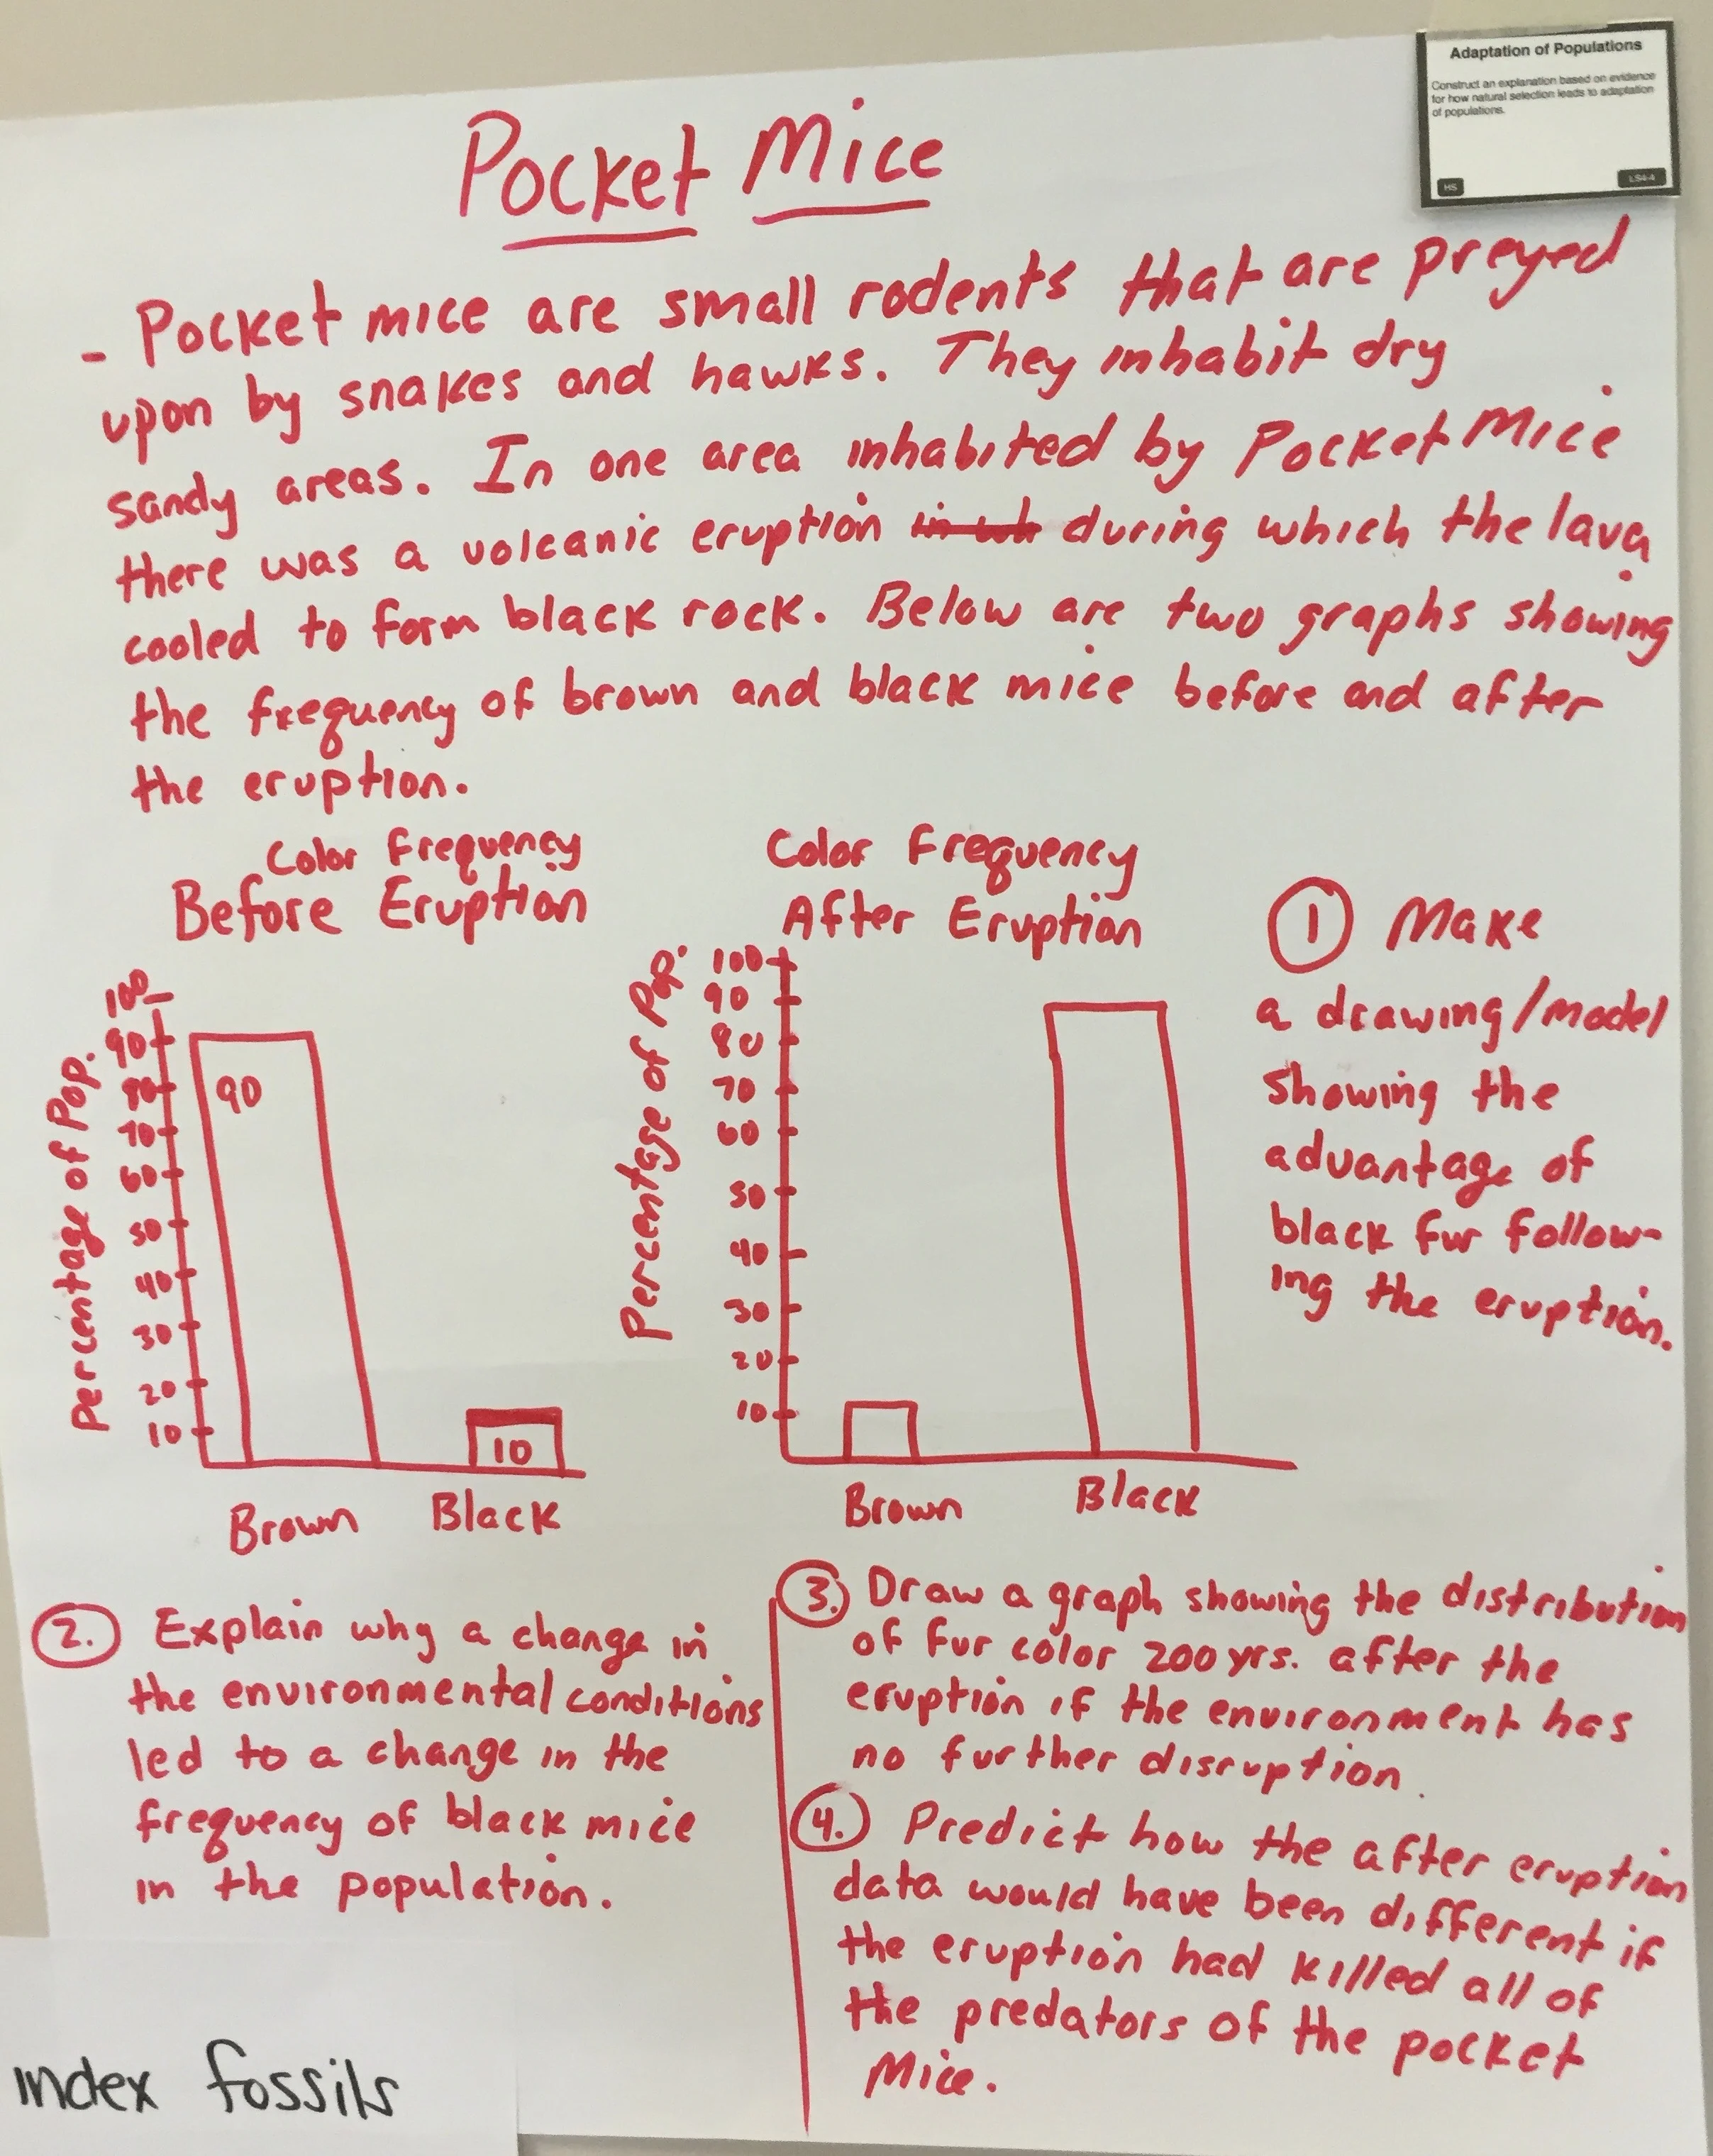 Adaptation of Populations
Construct an explanation based on evidence
for how natural selection leads to adaptation
of populations.
HS
LS4-4
Pocket Mice
- Pocket mice are small rodents that are preyed
upon by snakes and hawks. They inhabit dry
sandy areas. In one area inhabited by Pocket Mice
there was a volcanic eruption during which the lava
cooled to form black rock. Below are two graphs showing
the frequency of brown and black mice before and after
the eruption.
Color Frequency
Before Eruption
Percentage of Pop.
100
90
80
70
60
50
40
30
20
10
90
10
Brown Black
Color Frequency
After Eruption
Percentage of Pop.
100
90
80
70
60
50
40
30
20
10
Brown Black
1 Make
a drawing/model
showing the
advantage of
black fur follow-
ing the eruption.
2. Explain why a change in
the environmental conditions
led to a change in the
frequency of black mice
in the population.
3. Draw a graph showing the distribution
of fur color 200 yrs. after the
eruption if the environment has
no further disruption.
4. Predict how the after eruption
data would have been different if
the eruption had killed all of
the predators of the pocket
Mice.
index fossils